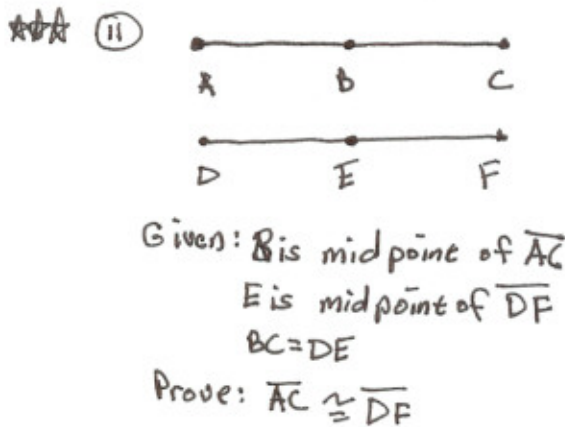 ☆☆☆ 11
A B C
D E F
Given: B is midpoint of AC
E is midpoint of DF
BC=DE
Prove: AC ≅ DF